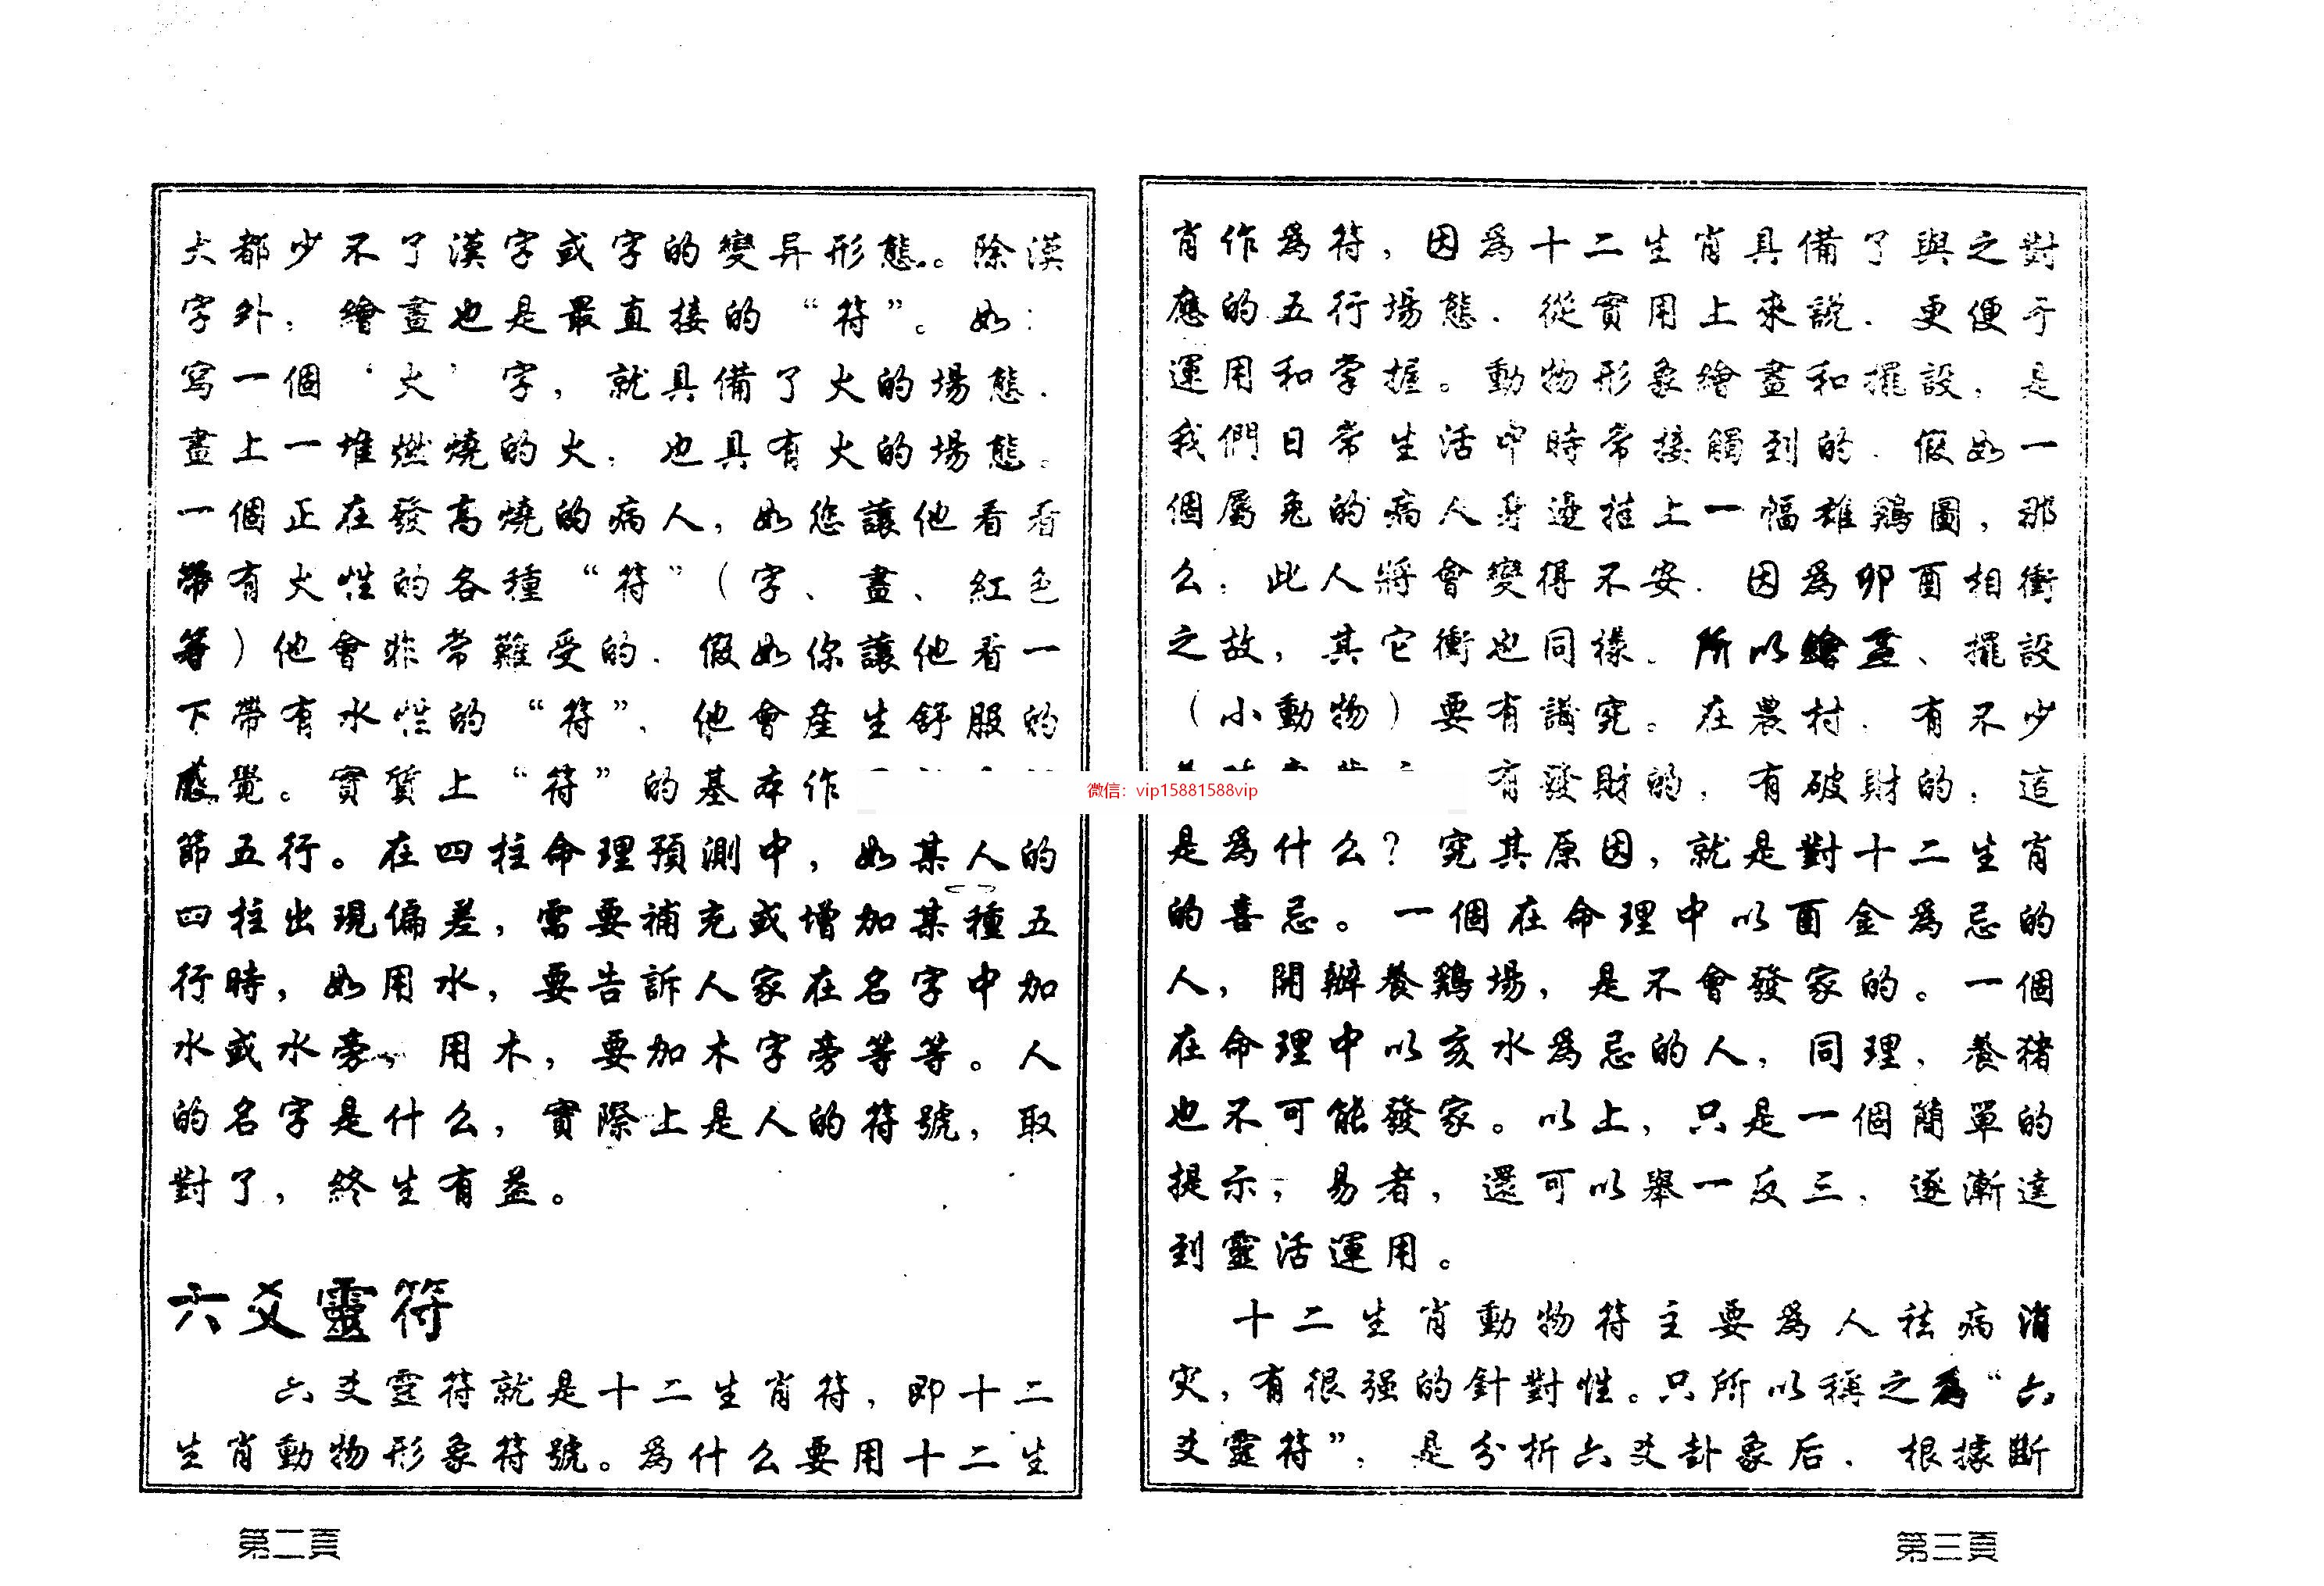 大都少不了漢字或字的變异形態。除漢
字外，繪畫也是最直接的“符”。如：
寫一個‘火’字，就具備了火的場態．
畫上一堆燃燒的火，也具有火的場態。
一個正在發高燒的病人，如您讓他看看
帶有火性的各種“符”（字、畫、紅色
等）他會非常難受的．假如你讓他看一
下帶有水性的“符”、他會產生舒服的
感覺。實質上“符”的基本作
節五行。在四柱命理預測中，如某人的
四柱出現偏差，需要補充或增加某種五
行時，如用水，要告訴人家在名字中加
水或水旁，用木，要加木字旁等等。人
的名字是什么，實際上是人的符號，取
對了，終生有益。
六爻靈符
六爻靈符就是十二生肖符，即十二
生肖動物形象符號。為什么要用十二生
第二頁
肖作為符，因為十二生肖具備了與之對
應的五行場態．從實用上來說．更便于
運用和掌握。動物形象繪畫和擺設，是
我們日常生活中時常接觸到的．假如一
個屬兔的病人身邊挂上一幅雄鷄圖，那
么，此人將會變得不安．因為卯酉相衝
之故，其它衝也同樣．所以繪畫、擺設
（小動物）要有講究。在農村．有不少
有發財的，有破財的，這
是為什么？究其原因，就是對十二生肖
的喜忌。一個在命理中以酉金為忌的
人，開辦養鷄場，是不會發家的。一個
在命理中以亥水為忌的人，同理，養猪
也不可能發家。以上，只是一個簡單的
提示，易者，還可以舉一反三，逐漸達
到靈活運用。
十二生肖動物符主要為人祛病消
灾，有很强的針對性。只所以稱之為“六
爻靈符”，是分析六爻卦象后．根據斷
第三頁
微信：vip15881588vip